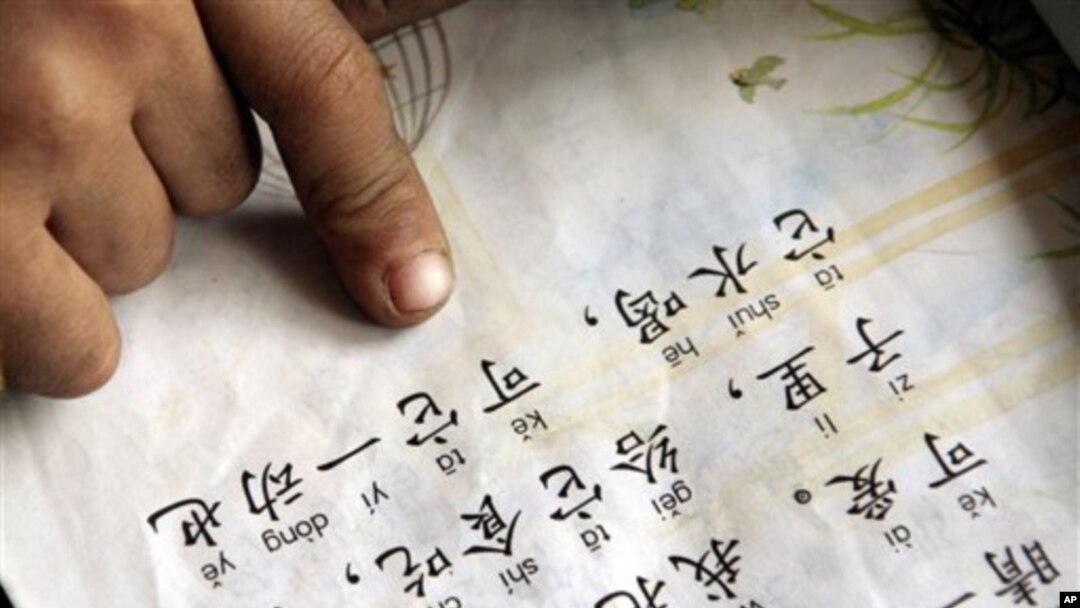 睛
kě ài
可爱。我把
zi li gěi tā shí
子里，给它食吃，
tā shuǐ hē kě tā yí dòng yě
它水喝，可它一动也
AP